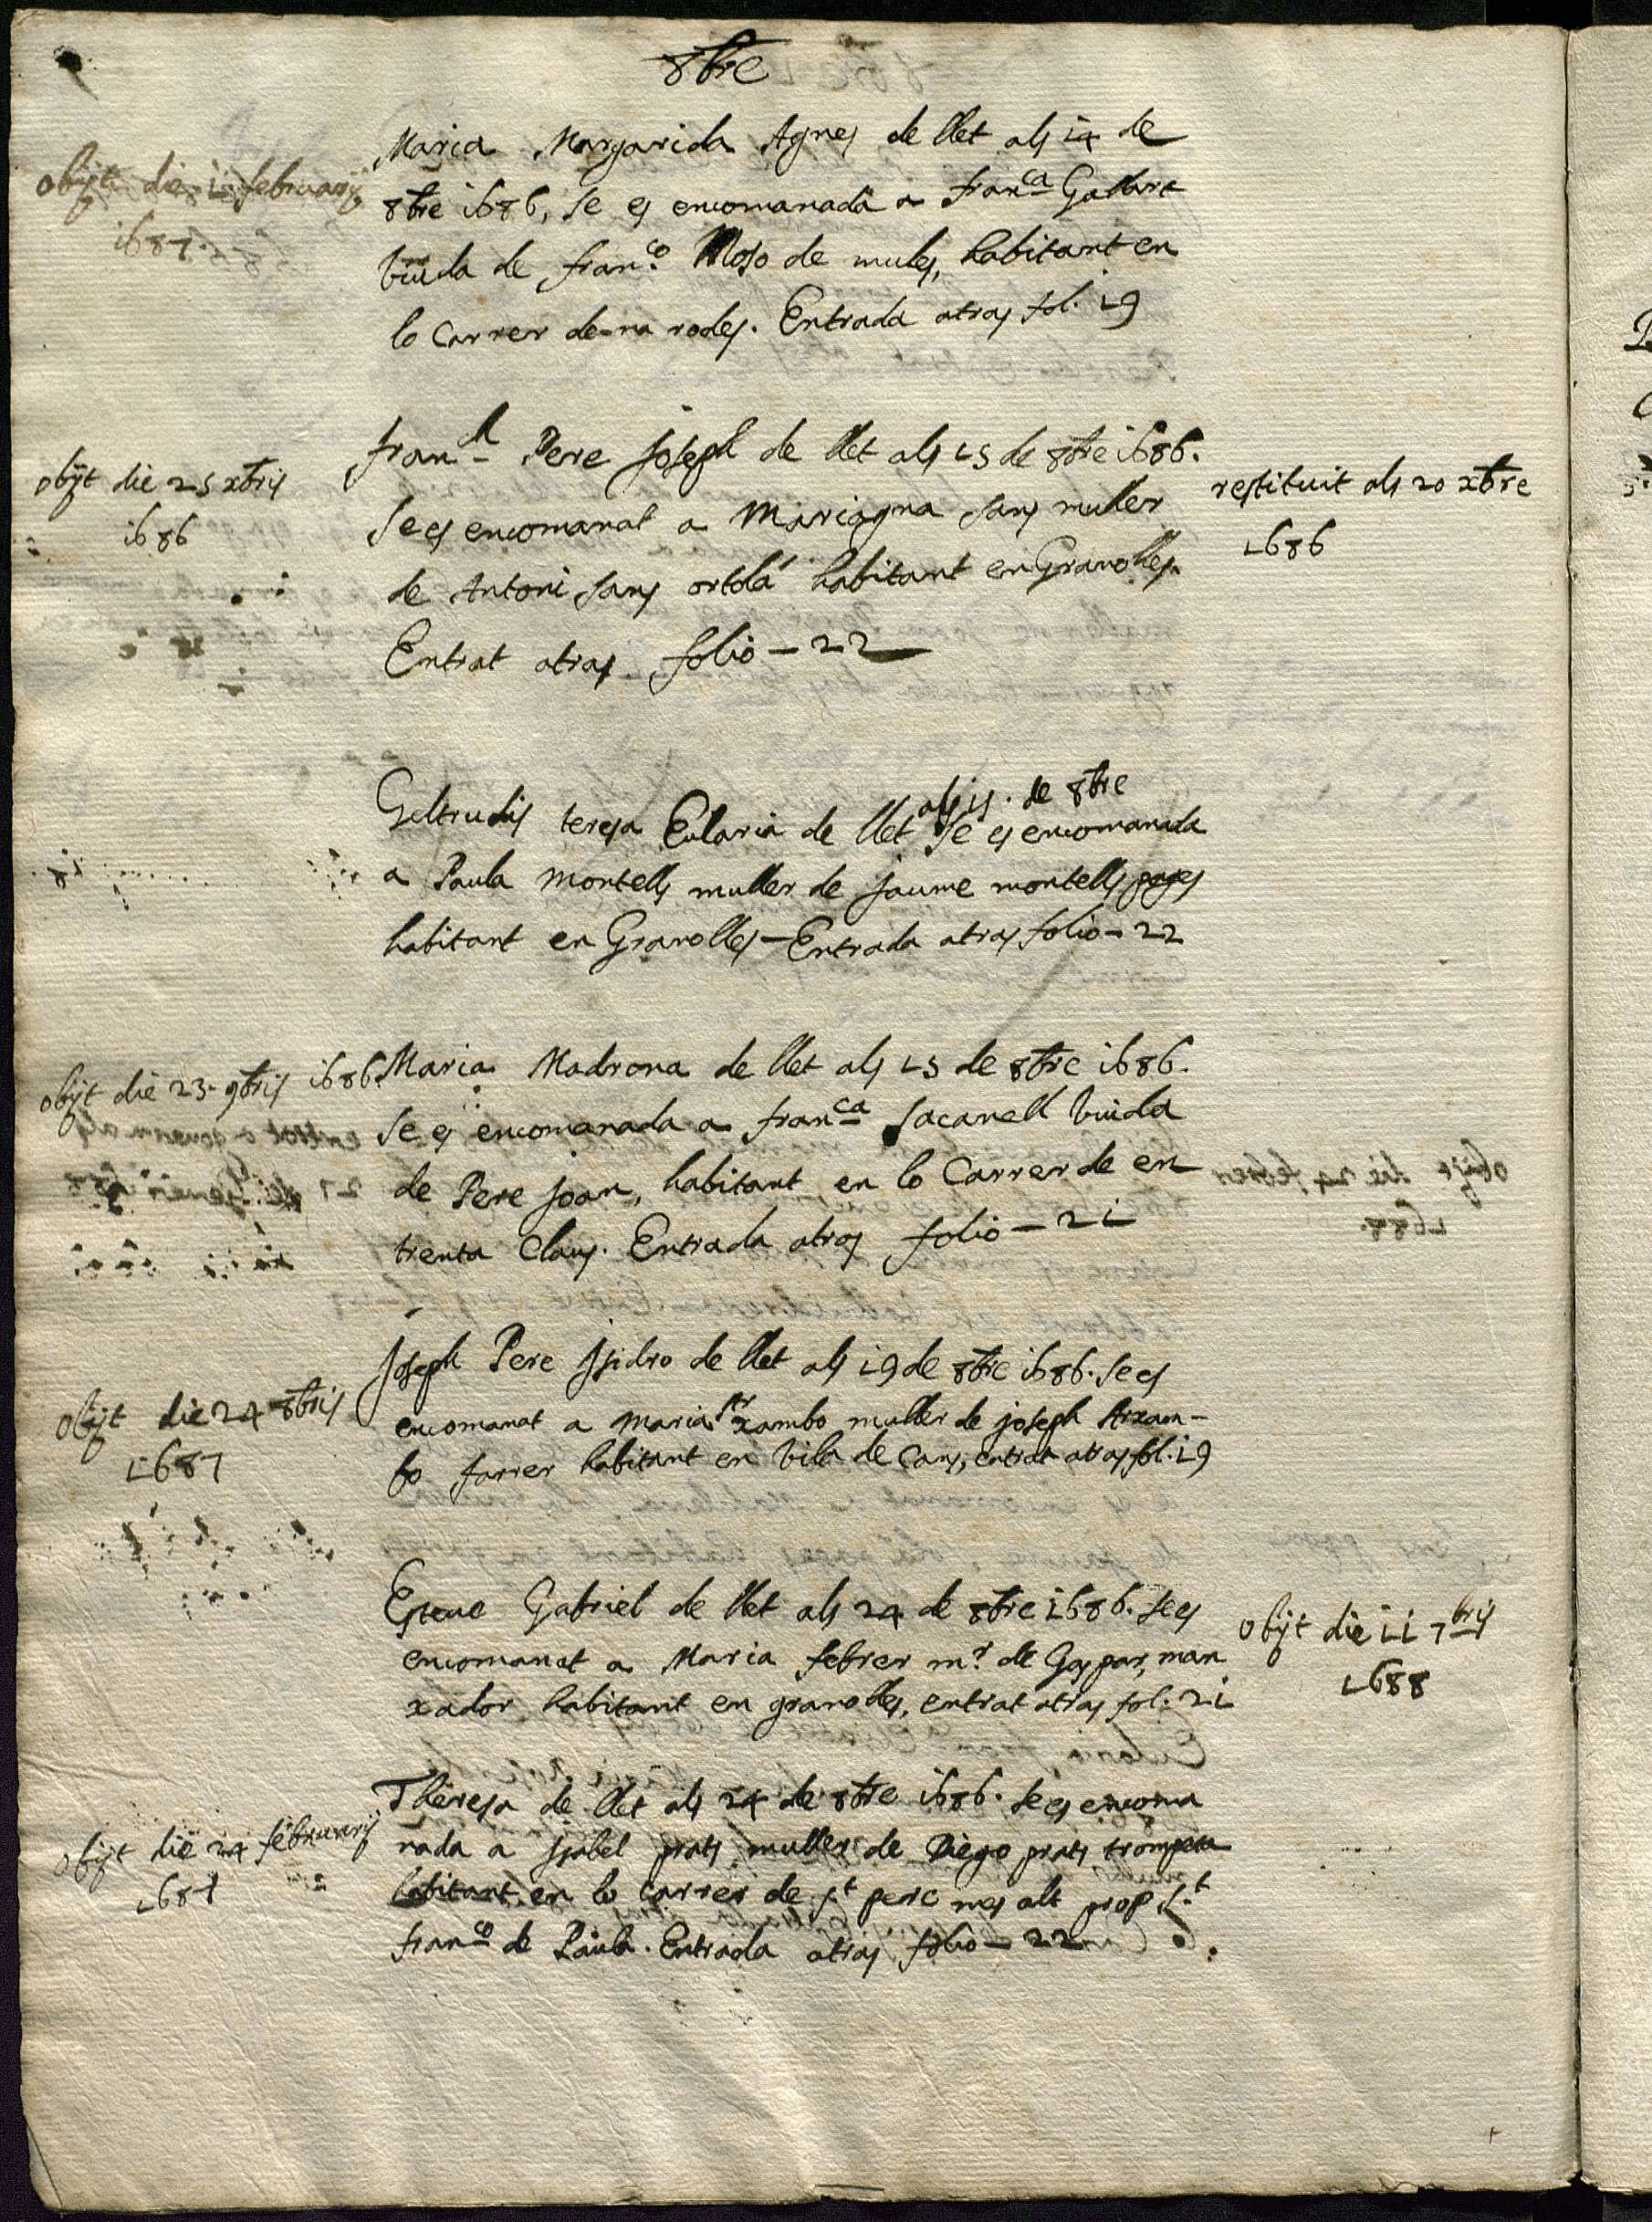 8bre
Maria Margarida Agnes de llet als 14 de
8bre 1686, se es encomanada a Franca Gallart
viuda de Franco Moso de mules, habitant en
lo Carrer de na rodes. Entrada atras fol. 19
obijt die 1 februarij
1687.
Franch Pere Joseph de llet als 15 de 8bre 1686.
se es encomanat a Mariagna sans muller
de Antoni sans ortola habitant en Granolles.
Entrat atras folio - 22
obijt die 25 xbris
1686
restituit als 20 xbre
1686
als 15. de 8bre
Geltrudis teresa Eularia de llet se es encomanada
a Paula Montells muller de Jaume montells pages
habitant en Granolles - Entrada atras folio - 22
obijt die 23. 9bris 1686.
Maria Madrona de llet als 15 de 8bre 1686.
se es encomanada a Franca Sacanell viuda
de Pere Joan, habitant en lo Carrer de en
trenta Claus. Entrada atras folio - 21
Joseph Pere Isidro de llet als 19 de 8bre 1686. se es
encomanat a Maria Arxambo muller de Joseph Arxam-
bo farrer habitant en Vila de Cans, entrat atras fol. 19
obijt die 24 8bris
1687
Esteve Gabriel de llet als 24 de 8bre 1686. se es
encomanat a Maria febrer mr. de Gaspar, man
xador habitant en granolles, entrat atras fol. 21
obijt die 11 7bris
1688
Theresa de llet als 24 de 8bre 1686. se es encoma
nada a Isabel prats muller de Diego prats trompeta
habitant en lo Carrer de st pere mes alt prop st
franco de Paula. Entrada atras folio - 22
obijt die 24 februarij
1687